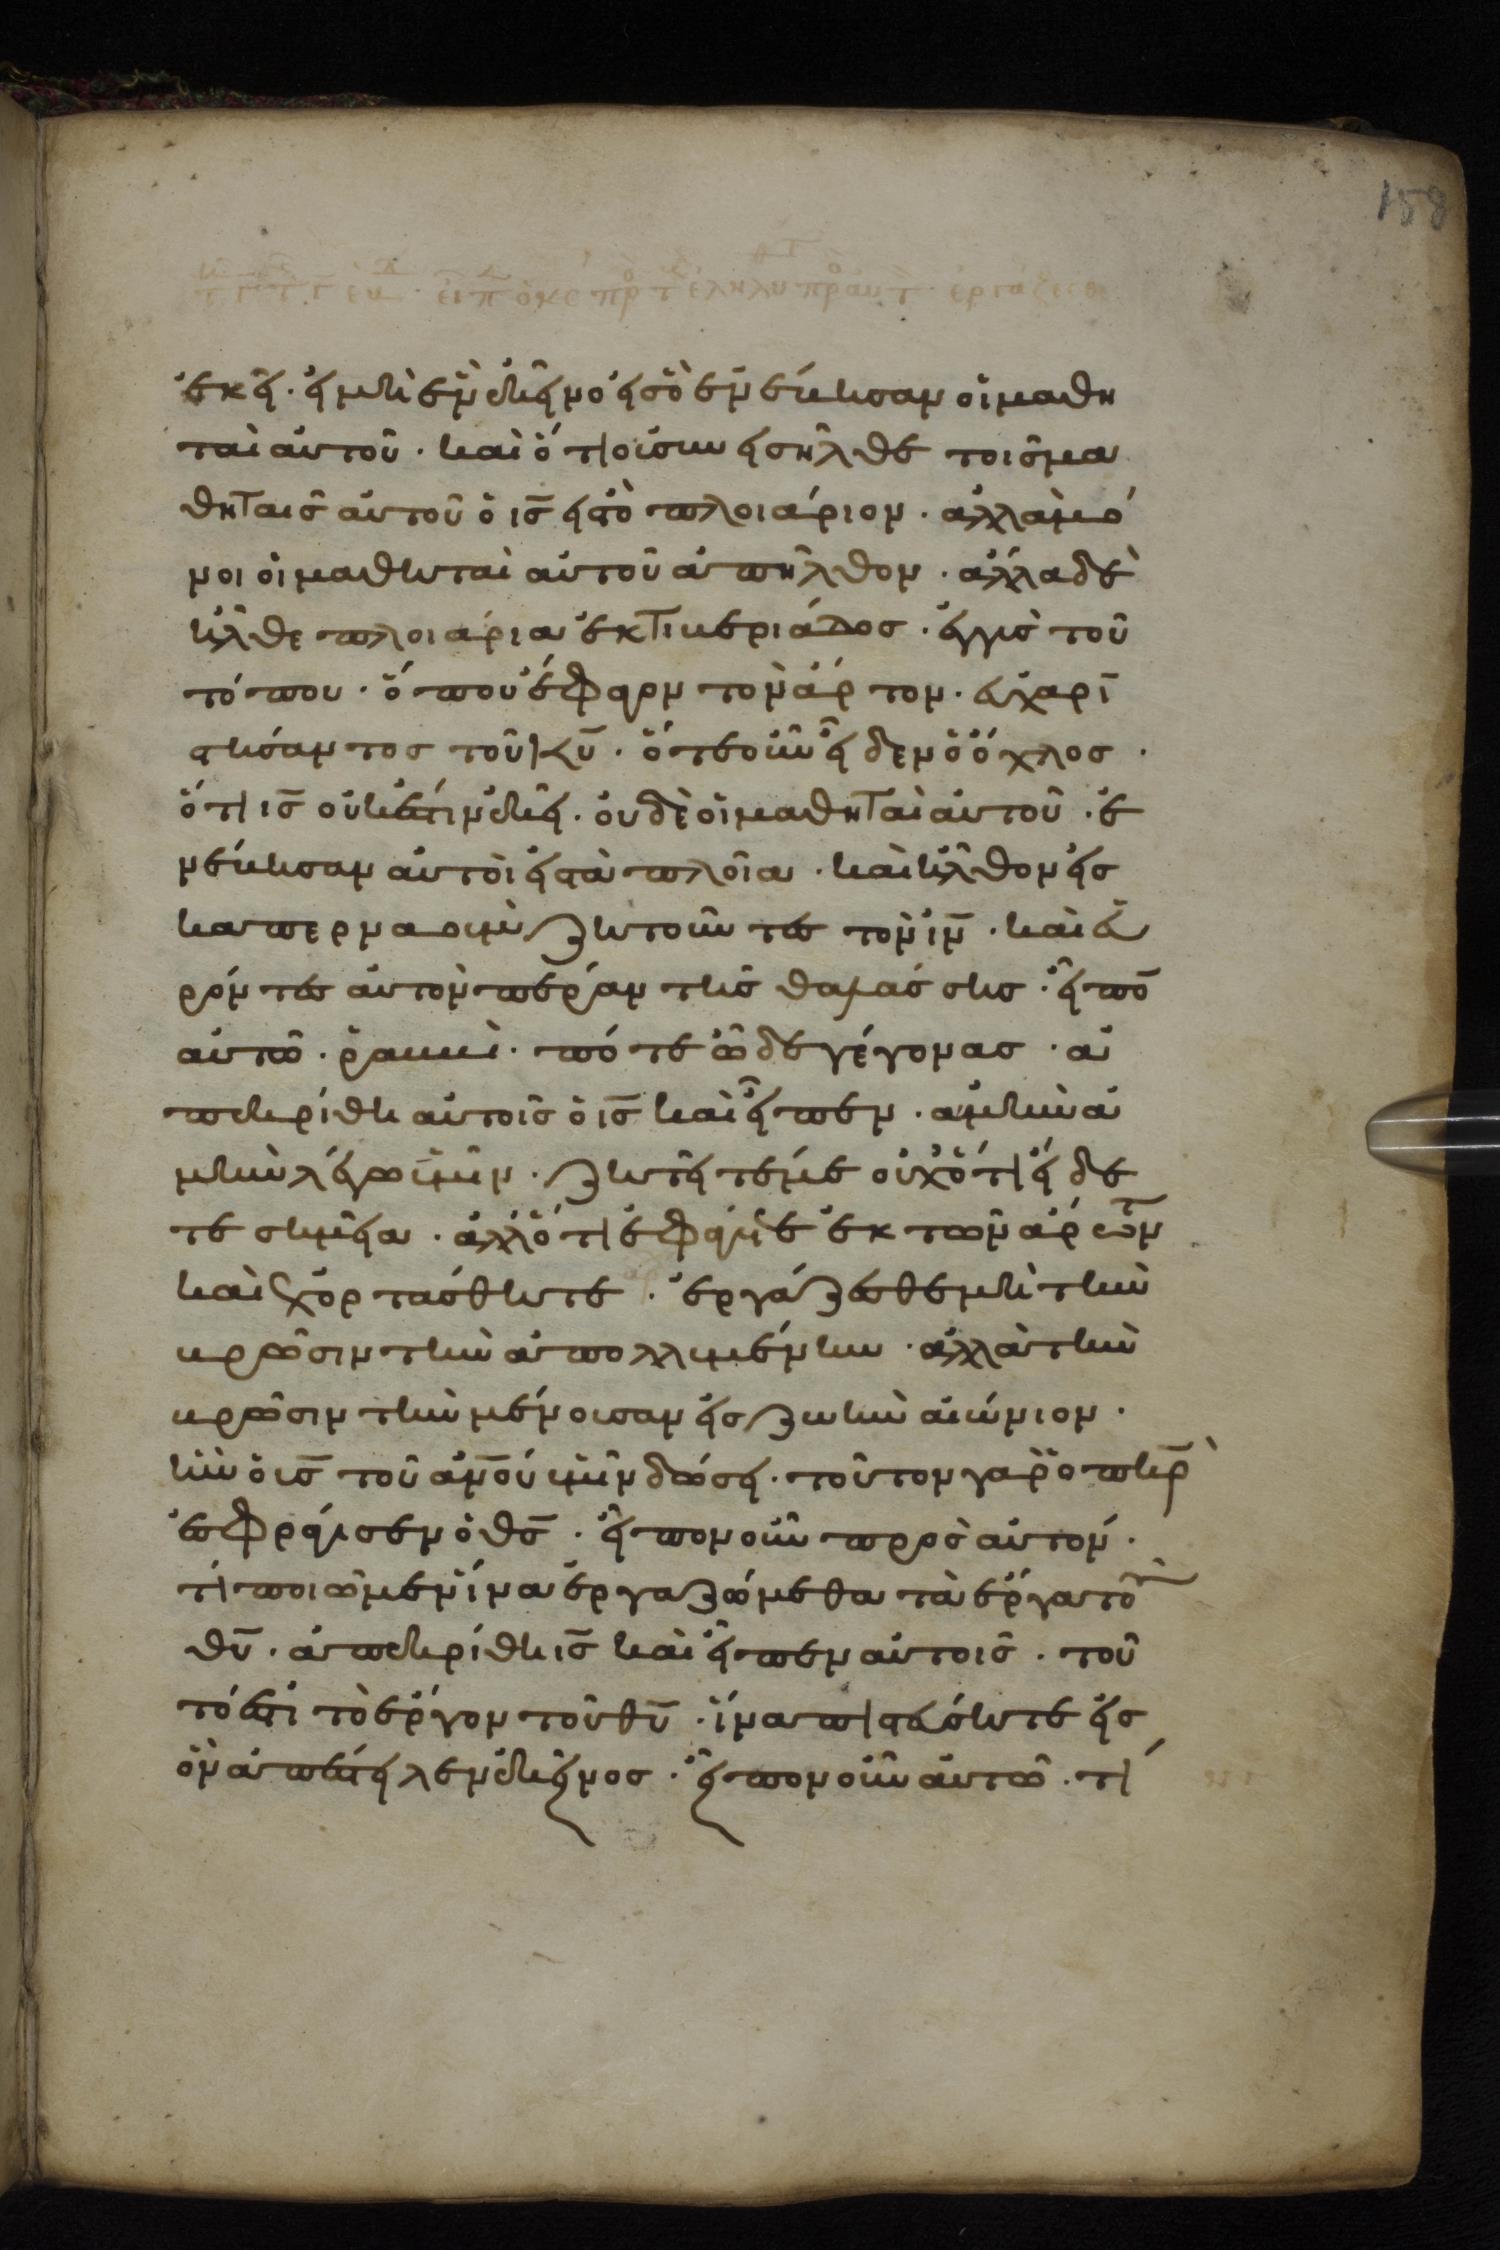 158
ἐκεῖ. εἰ μὴ ἓν ἐκεῖνο εἰς ὃ ἐνέβησαν οἱ μαθη
ταὶ αὐτοῦ. καὶ ὅτι οὐ συνεισῆλθε τοῖς μα
θηταῖς αὐτοῦ ὁ ις εἰς τὸ πλοιάριον. ἀλλὰ μό
νοι οἱ μαθηταὶ αὐτοῦ ἀπῆλθον. ἄλλα δὲ
ἦλθε πλοιάρια ἐκ τιβεριάδος. ἐγγὺς τοῦ
τόπου. ὅπου ἔφαγον τὸν ἄρτον. εὐχαρι
στήσαντος τοῦ κυ. ὅτε οὖν εἶδεν ὁ ὄχλος.
ὅτι ις οὐκ ἔστιν ἐκεῖ. οὐδὲ οἱ μαθηταὶ αὐτοῦ. ἐ
νέβησαν αὐτοὶ εἰς τὰ πλοῖα. καὶ ἦλθον εἰς
καπερναοὺμ ζητοῦντες τὸν ιν. καὶ εὑ
ρόντες αὐτὸν πέραν τῆς θαλάσσης. εἶπον
αὐτῷ. ῥαββὶ. πότε ὧδε γέγονας. ἀ
πεκρίθη αὐτοῖς ὁ ις καὶ εἶπεν. ἀμὴν ἀ
μὴν λέγω ὑμῖν. ζητεῖτέ με οὐχ ὅτι εἴδε
τε σημεῖα. ἀλλ' ὅτι ἐφάγετε ἐκ τῶν ἄρτων
καὶ ἐχορτάσθητε. ἐργάζεσθε μὴ τὴν
βρῶσιν τὴν ἀπολλυμένην. ἀλλὰ τὴν
βρῶσιν τὴν μένουσαν εἰς ζωὴν αἰώνιον.
ἣν ὁ υς τοῦ ανου ὑμῖν δώσει. τοῦτον γὰρ ὁ πηρ
ἐσφράγισεν ὁ θς. εἶπον οὖν πρὸς αὐτόν.
τί ποιῶμεν ἵνα ἐργαζώμεθα τὰ ἔργα τοῦ
θυ. ἀπεκρίθη ις καὶ εἶπεν αὐτοῖς. τοῦ
τό ἐστι τὸ ἔργον τοῦ θυ. ἵνα πιστεύσητε εἰς
ὃν ἀπέστειλεν ἐκεῖνος. εἶπον οὖν αὐτῷ. τί